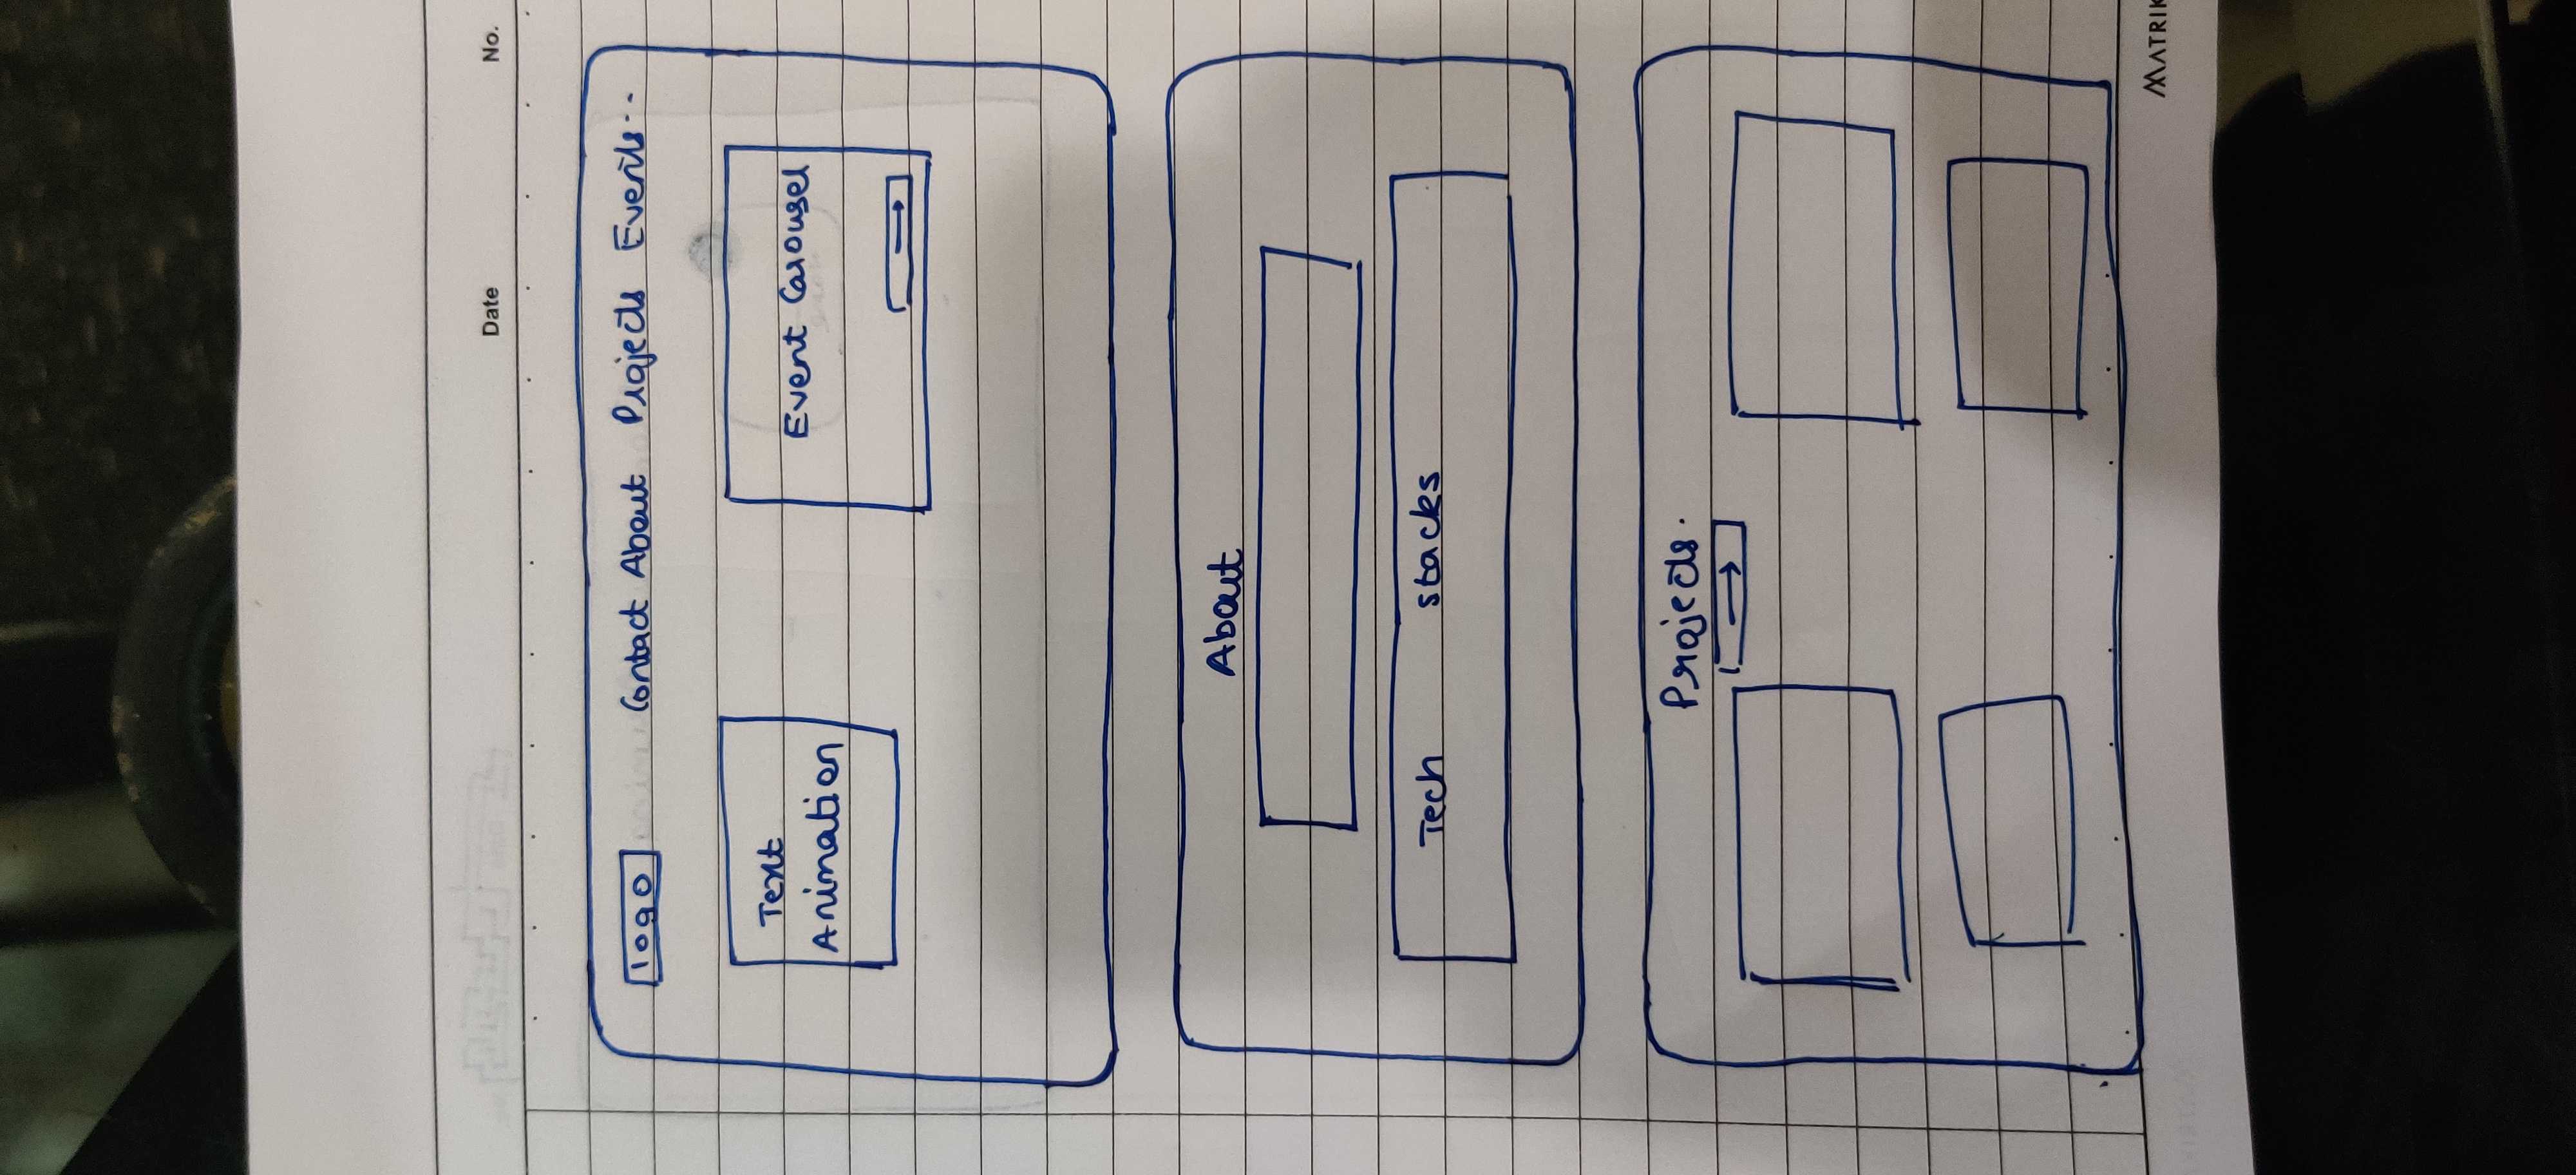 No.
Date
logo Contact About Projects Events..
Text
Animation
Event Carousel
→
About
Tech stacks
Projects.
→